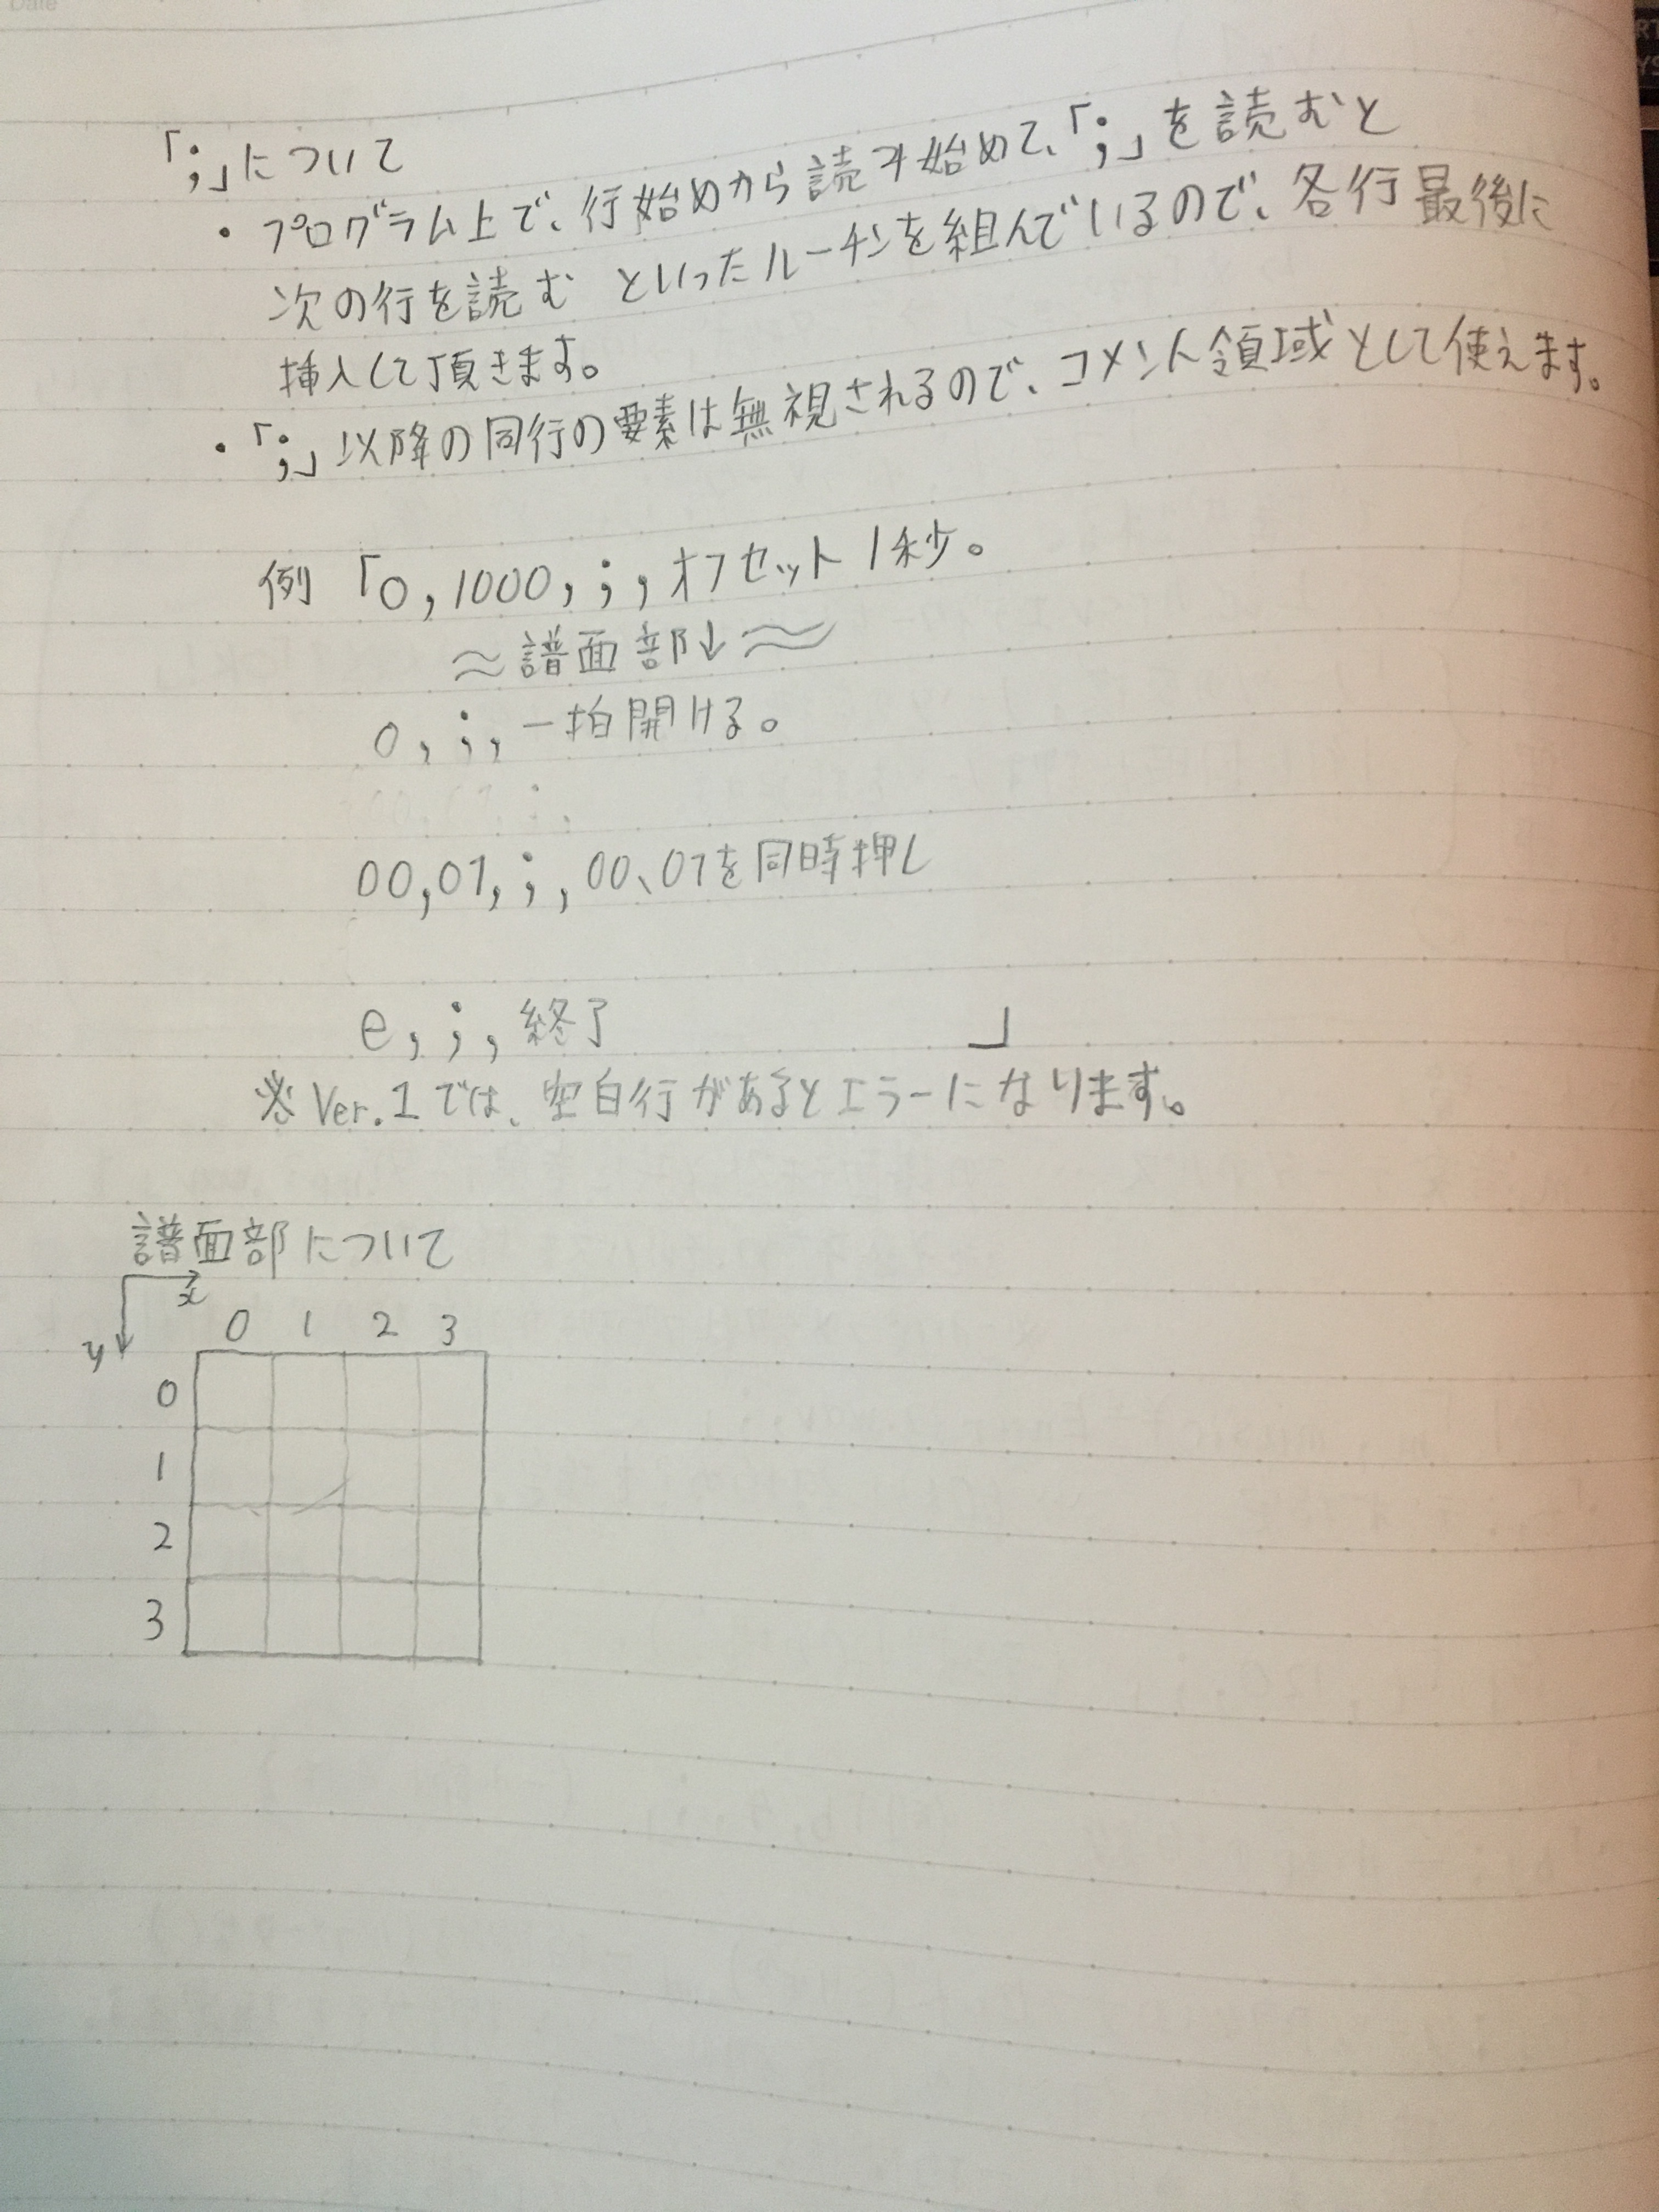 Date
「;」について
・プログラム上で、行始めから読み始めて、「;」を読むと
次の行を読む といったルーチンを組んでいるので、各行最後に
挿入して頂きます。
・「;」以降の同行の要素は無視されるので、コメント領域として使えます。
例 「0,1000,;,オフセット1秒。
≈譜面部↓≈
0,;,一拍開ける。
00,01,;,00、01を同時押し
e,;,終了 」
※Ver.1では、空白行があるとエラーになります。
譜面部について
x
y
0 1 2 3
0
1
2
3